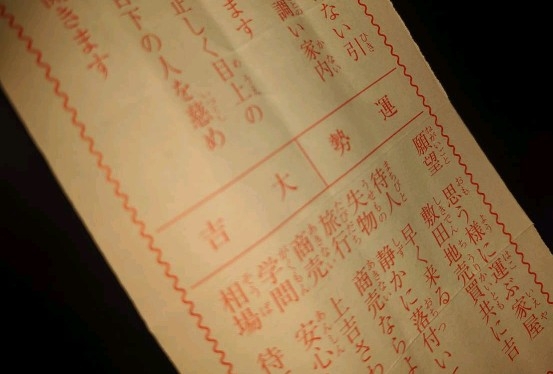 ない引
調い家内
ます
正しく目上の
目下の人を慈め
きます
運勢
大吉
願望 思う様に運ぶ家屋
敷田地売買共に吉
待人 早く来る
失物 静かに
旅行 商売ならよ
商売 上吉さわ
学問 安心
相場 待